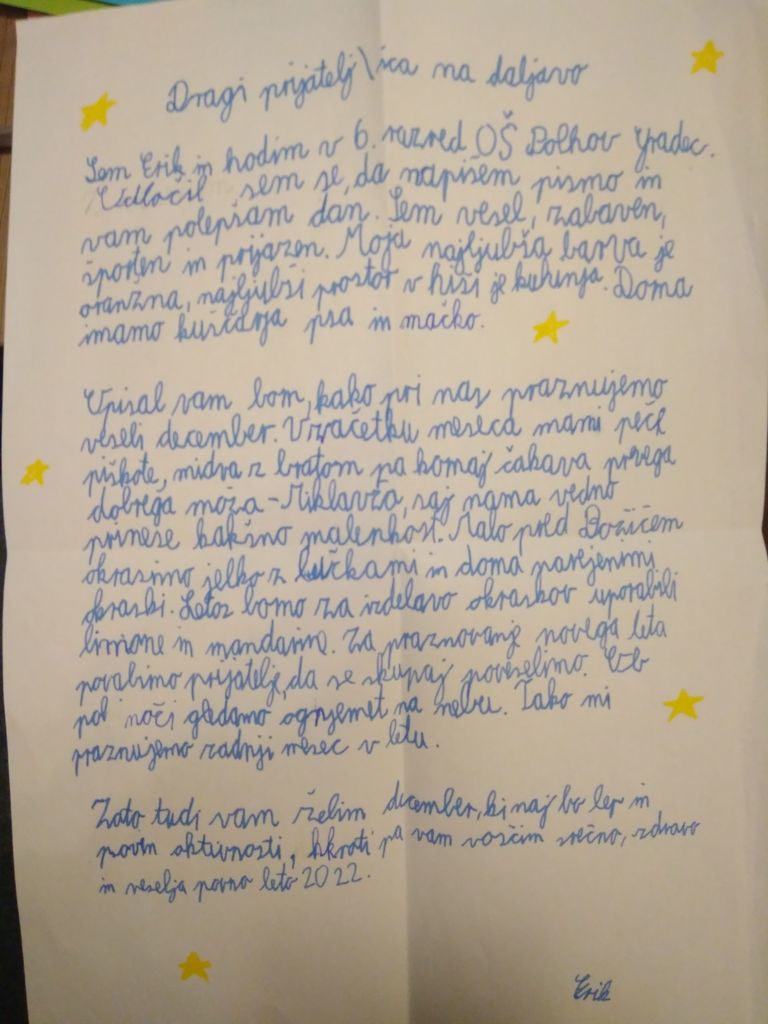 Dragi prijatelj\ica na daljavo
Sem Erik in hodim v 6. razred OŠ Polhov Gradec.
Odločil sem se, da napišem pismo in
vam polepšam dan. Sem vesel, zabaven,
športen in prijazen. Moja najljubša barva je
oranžna, najljubši prostor v hiši je kuhinja. Doma
imamo kuščarja psa in mačko.
Opisal vam bom, kako pri nas praznujemo
veseli december. V začetku meseca mami peče
piškote, midva z bratom pa komaj čakava prvega
dobrega moža - Miklavža, saj nama vedno
prinese kakšno malenkost. Malo pred Božičem
okrasimo jelko z lučkami in doma narejenimi
okraski. Letos bomo za izdelavo okraskov uporabili
limone in mandarine. Za praznovanje novega leta
povabimo prijatelje, da se skupaj poveselimo. Ob
pol noči gledamo ognjemet na nebu. Tako mi
praznujemo zadnji mesec v letu.
Zato tudi vam želim december, ki naj bo lep in
poln aktivnosti, hkrati pa vam voščim srečno, zdravo
in veselja polno leto 2022.
Erik